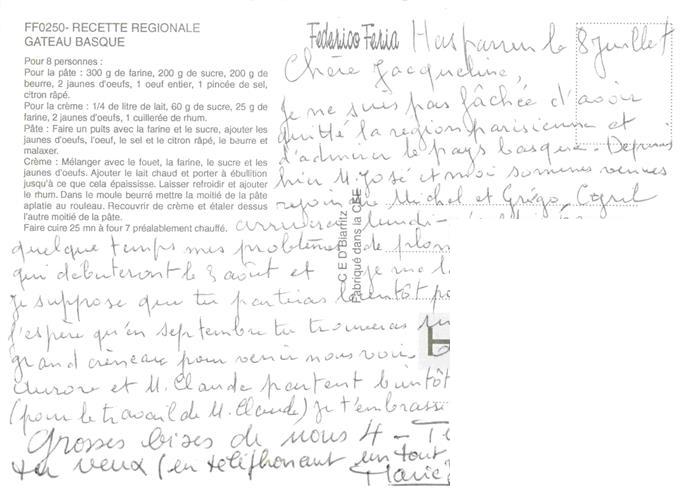 FF0250- RECETTE REGIONALE
GATEAU BASQUE
Pour 8 personnes :
Pour la pâte : 300 g de farine, 200 g de sucre, 200 g de
beurre, 2 jaunes d'oeufs, 1 oeuf entier, 1 pincée de sel,
citron râpé.
Pour la crème : 1/4 de litre de lait, 60 g de sucre, 25 g de
farine, 2 jaunes d'oeufs, 1 cuillerée de rhum.
Pâte : Faire un puits avec la farine et le sucre, ajouter les
jaunes d'oeufs, l'oeuf, le sel et le citron râpé, le beurre et
malaxer.
Crème : Mélanger avec le fouet, la farine, le sucre et les
jaunes d'oeufs. Ajouter le lait chaud et porter à ébullition
jusqu'à ce que cela épaississe. Laisser refroidir et ajouter
le rhum. Dans le moule beurré mettre la moitié de la pâte
aplatie au rouleau. Recouvrir de crème et étaler dessus
l'autre moitié de la pâte.
Faire cuire 25 mn à four 7 préalablement chauffé.
Federico Feria
C E D Biarritz
Fabriqué dans la CEE
Hasparren le 8 juillet
Chère Jacqueline,
Je ne suis pas fâchée d'avoir
quitté la region parisienne et
d'admirer le pays basque. Depuis
hier M. José et moi sommes venues
rejoindre Michel et Grégo, Cyril
arrivera lundi
quelque temps mes problèmes de
qui débuteront le 3 août et je me
Je suppose que tu partiras bientôt
J'espère qu'en septembre tu trouveras un
grand créneau pour venir nous voir.
Aurore et M. Claude partent bientôt
(pour le travail de M. Claude) je t'embrasse
Grosses bises de nous 4 -
tu veux (en téléphonant un tout
Marie